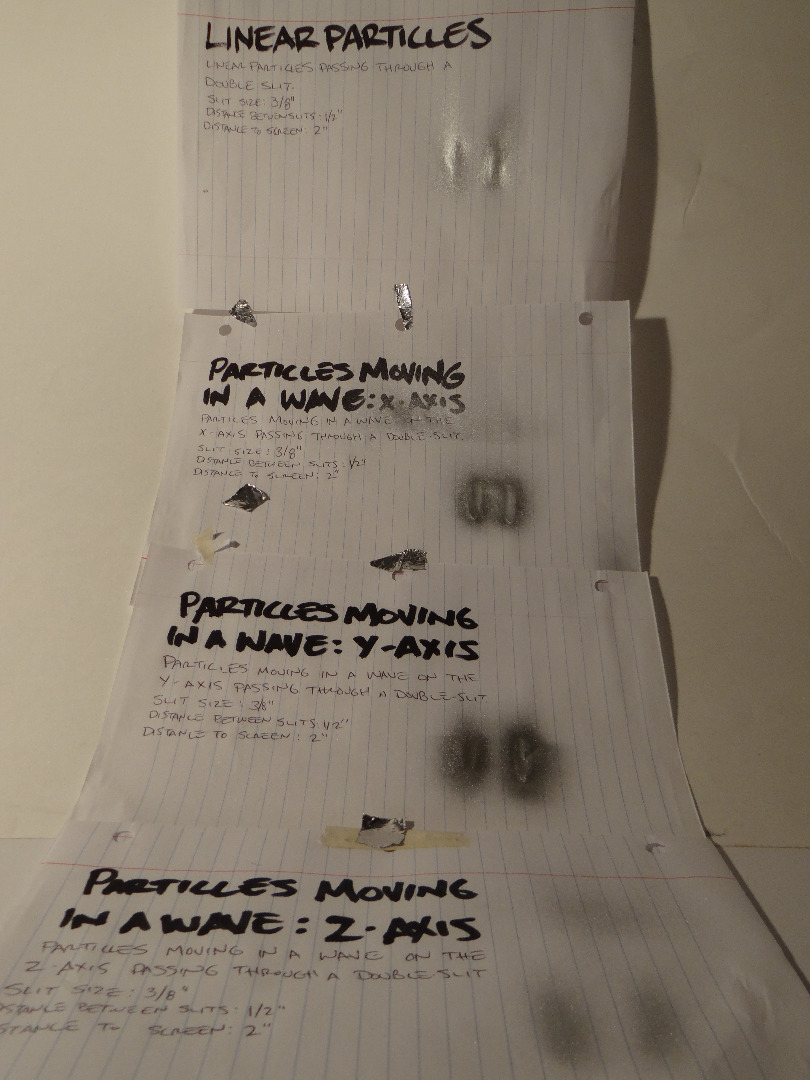 LINEAR PARTICLES
LINEAR PARTICLES PASSING THROUGH A
DOUBLE SLIT.
SLIT SIZE: 3/8"
DISTANCE BETWEEN SLITS: 1/2"
DISTANCE TO SCREEN: 2"
PARTICLES MOVING
IN A WAVE: X-AXIS
PARTICLES MOVING IN A WAVE ON THE
X-AXIS PASSING THROUGH A DOUBLE-SLIT.
SLIT SIZE: 3/8"
DISTANCE BETWEEN SLITS: 1/2"
DISTANCE TO SCREEN: 2"
PARTICLES MOVING
IN A WAVE: Y-AXIS
PARTICLES MOVING IN A WAVE ON THE
Y-AXIS PASSING THROUGH A DOUBLE-SLIT
SLIT SIZE: 3/8"
DISTANCE BETWEEN SLITS: 1/2"
DISTANCE TO SCREEN: 2"
PARTICLES MOVING
IN A WAVE: Z-AXIS
PARTICLES MOVING IN A WAVE ON THE
Z-AXIS PASSING THROUGH A DOUBLE-SLIT
SLIT SIZE: 3/8"
STANCE BETWEEN SLITS: 1/2"
STANCE TO SCREEN: 2"